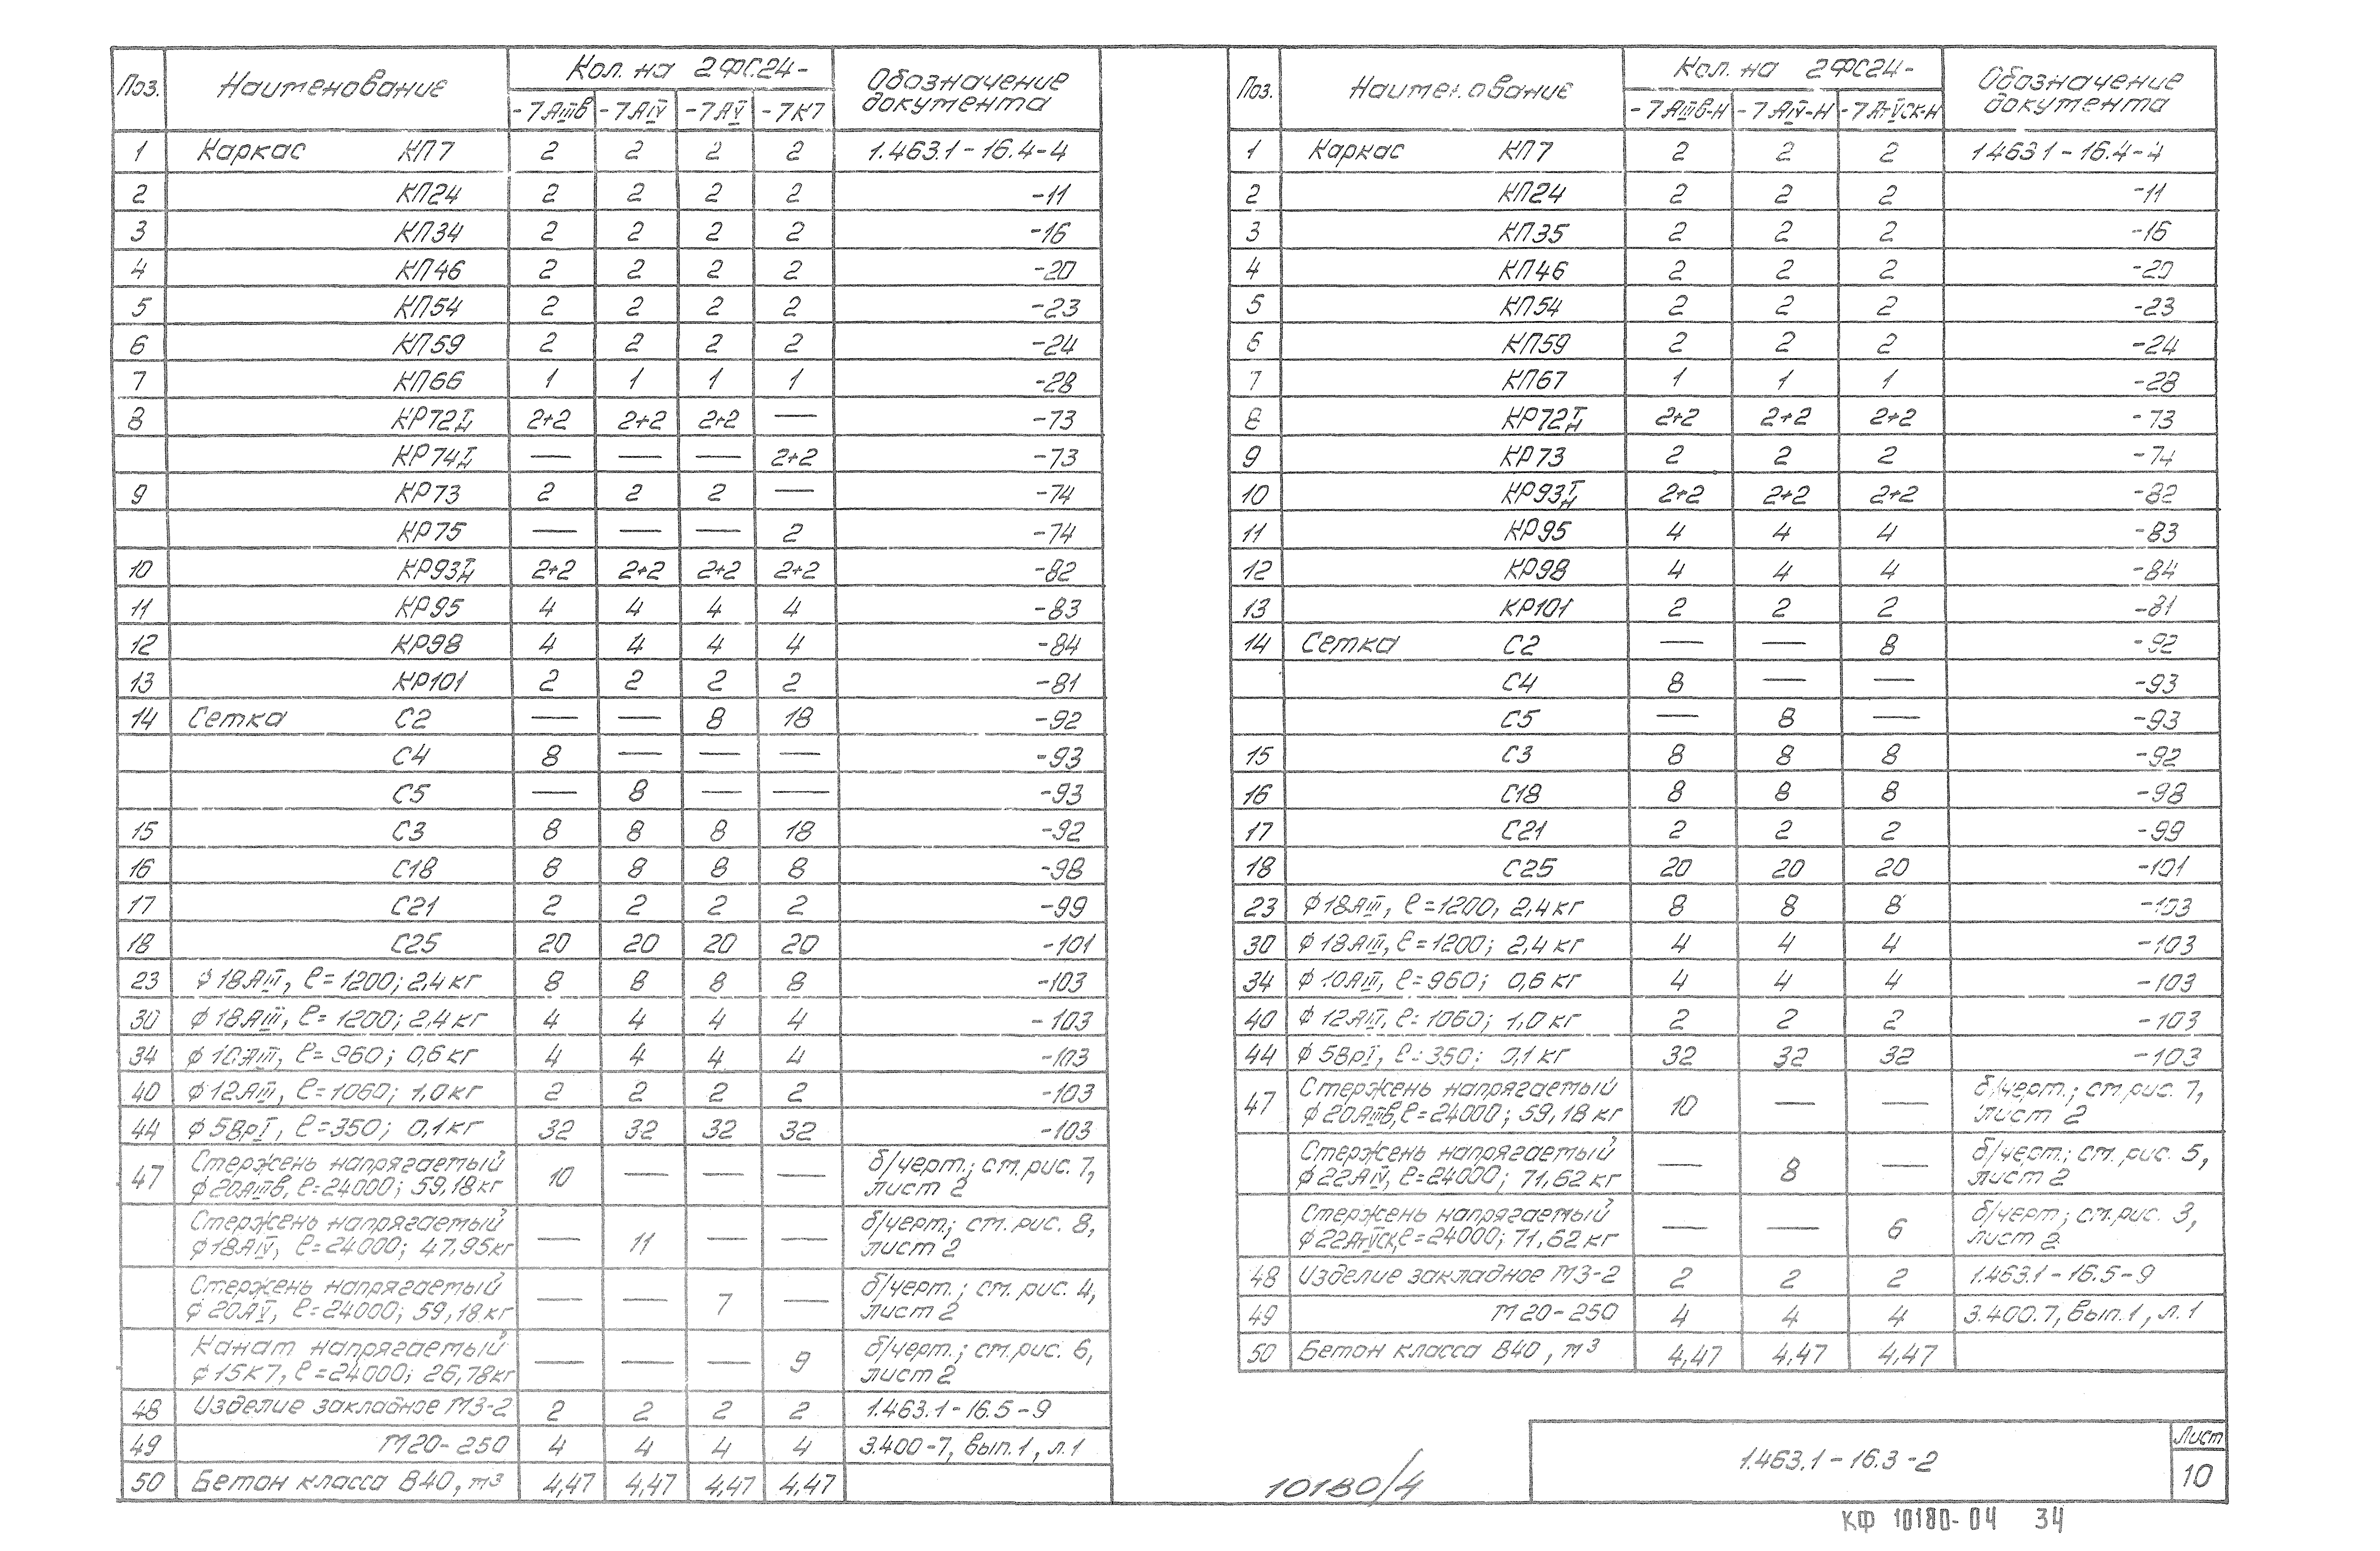 Поз. Наименование Кол. на 2ФС24- Обозначение документа
-7АIIIв -7АIV -7АV -7К7
1 Каркас КП7 2 2 2 2 1.463.1-16.4-4
2 КП24 2 2 2 2 -11
3 КП34 2 2 2 2 -16
4 КП46 2 2 2 2 -20
5 КП54 2 2 2 2 -23
6 КП59 2 2 2 2 -24
7 КП66 1 1 1 1 -28
8 КР72Т/Н 2+2 2+2 2+2 — -73
КР74Т/Н — — — 2+2 -73
9 КР73 2 2 2 — -74
КР75 — — — 2 -74
10 КР93Т/Н 2+2 2+2 2+2 2+2 -82
11 КР95 4 4 4 4 -83
12 КР98 4 4 4 4 -84
13 КР101 2 2 2 2 -81
14 Сетка С2 — — 8 18 -92
С4 8 — — — -93
С5 — 8 — — -93
15 С3 8 8 8 18 -92
16 С18 8 8 8 8 -98
17 С21 2 2 2 2 -99
18 С25 20 20 20 20 -101
23 ϕ18АIII, ℓ=1200; 2,4кг 8 8 8 8 -103
30 ϕ18АIII, ℓ=1200; 2,4кг 4 4 4 4 -103
34 ϕ10АIII, ℓ=960; 0,6кг 4 4 4 4 -103
40 ϕ12АIII, ℓ=1060; 1,0кг 2 2 2 2 -103
44 ϕ5ВрI, ℓ=350; 0,1кг 32 32 32 32 -103
47 Стержень напрягаемый ϕ20АIIIв, ℓ=24000; 59,18кг 10 — — — б/черт.; см. рис. 7, лист 2
Стержень напрягаемый ϕ18АIV, ℓ=24000; 47,95кг — 11 — — б/черт.; см. рис. 8, лист 2
Стержень напрягаемый ϕ20АV, ℓ=24000; 59,18кг — — 7 — б/черт.; см. рис. 4, лист 2
Канат напрягаемый ϕ15К7, ℓ=24000; 26,78кг — — — 9 б/черт.; см. рис. 6, лист 2
48 Изделие закладное М3-2 2 2 2 2 1.463.1-16.5-9
49 М20-250 4 4 4 4 3.400-7, вып.1, л.1
50 Бетон класса В40, м³ 4,47 4,47 4,47 4,47
Поз. Наименование Кол. на 2ФС24- Обозначение документа
-7АIIIв-Н -7АIV-Н -7АтVСК-Н
1 Каркас КП7 2 2 2 1.463.1-16.4-4
2 КП24 2 2 2 -11
3 КП35 2 2 2 -16
4 КП46 2 2 2 -20
5 КП54 2 2 2 -23
6 КП59 2 2 2 -24
7 КП67 1 1 1 -28
8 КР72Т/Н 2+2 2+2 2+2 -73
9 КР73 2 2 2 -74
10 КР93Т/Н 2+2 2+2 2+2 -82
11 КР95 4 4 4 -83
12 КР98 4 4 4 -84
13 КР101 2 2 2 -81
14 Сетка С2 — — 8 -92
С4 8 — — -93
С5 — 8 — -93
15 С3 8 8 8 -92
16 С18 8 8 8 -98
17 С21 2 2 2 -99
18 С25 20 20 20 -101
23 ϕ18АIII, ℓ=1200; 2,4кг 8 8 8 -103
30 ϕ18АIII, ℓ=1200; 2,4кг 4 4 4 -103
34 ϕ10АIII, ℓ=960; 0,6кг 4 4 4 -103
40 ϕ12АIII, ℓ=1060; 1,0кг 2 2 2 -103
44 ϕ5ВрI, ℓ=350; 0,1кг 32 32 32 -103
47 Стержень напрягаемый ϕ20АIIIв, ℓ=24000; 59,18кг 10 — — б/черт.; см. рис. 7, лист 2
Стержень напрягаемый ϕ22АIV, ℓ=24000; 71,62кг — 8 — б/черт.; см. рис. 5, лист 2
Стержень напрягаемый ϕ22АтVСК, ℓ=24000; 71,62кг — — 6 б/черт; см. рис. 3, лист 2
48 Изделие закладное М3-2 2 2 2 1.463.1-16.5-9
49 М20-250 4 4 4 3.400.7, вып.1, л.1
50 Бетон класса В40, м³ 4,47 4,47 4,47
10180/4
1.463.1-16.3-2
Лист
10
КФ 10180-04 34